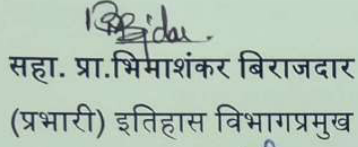 सहा. प्रा.भिमाशंकर बिराजदार
(प्रभारी) इतिहास विभागप्रमुख